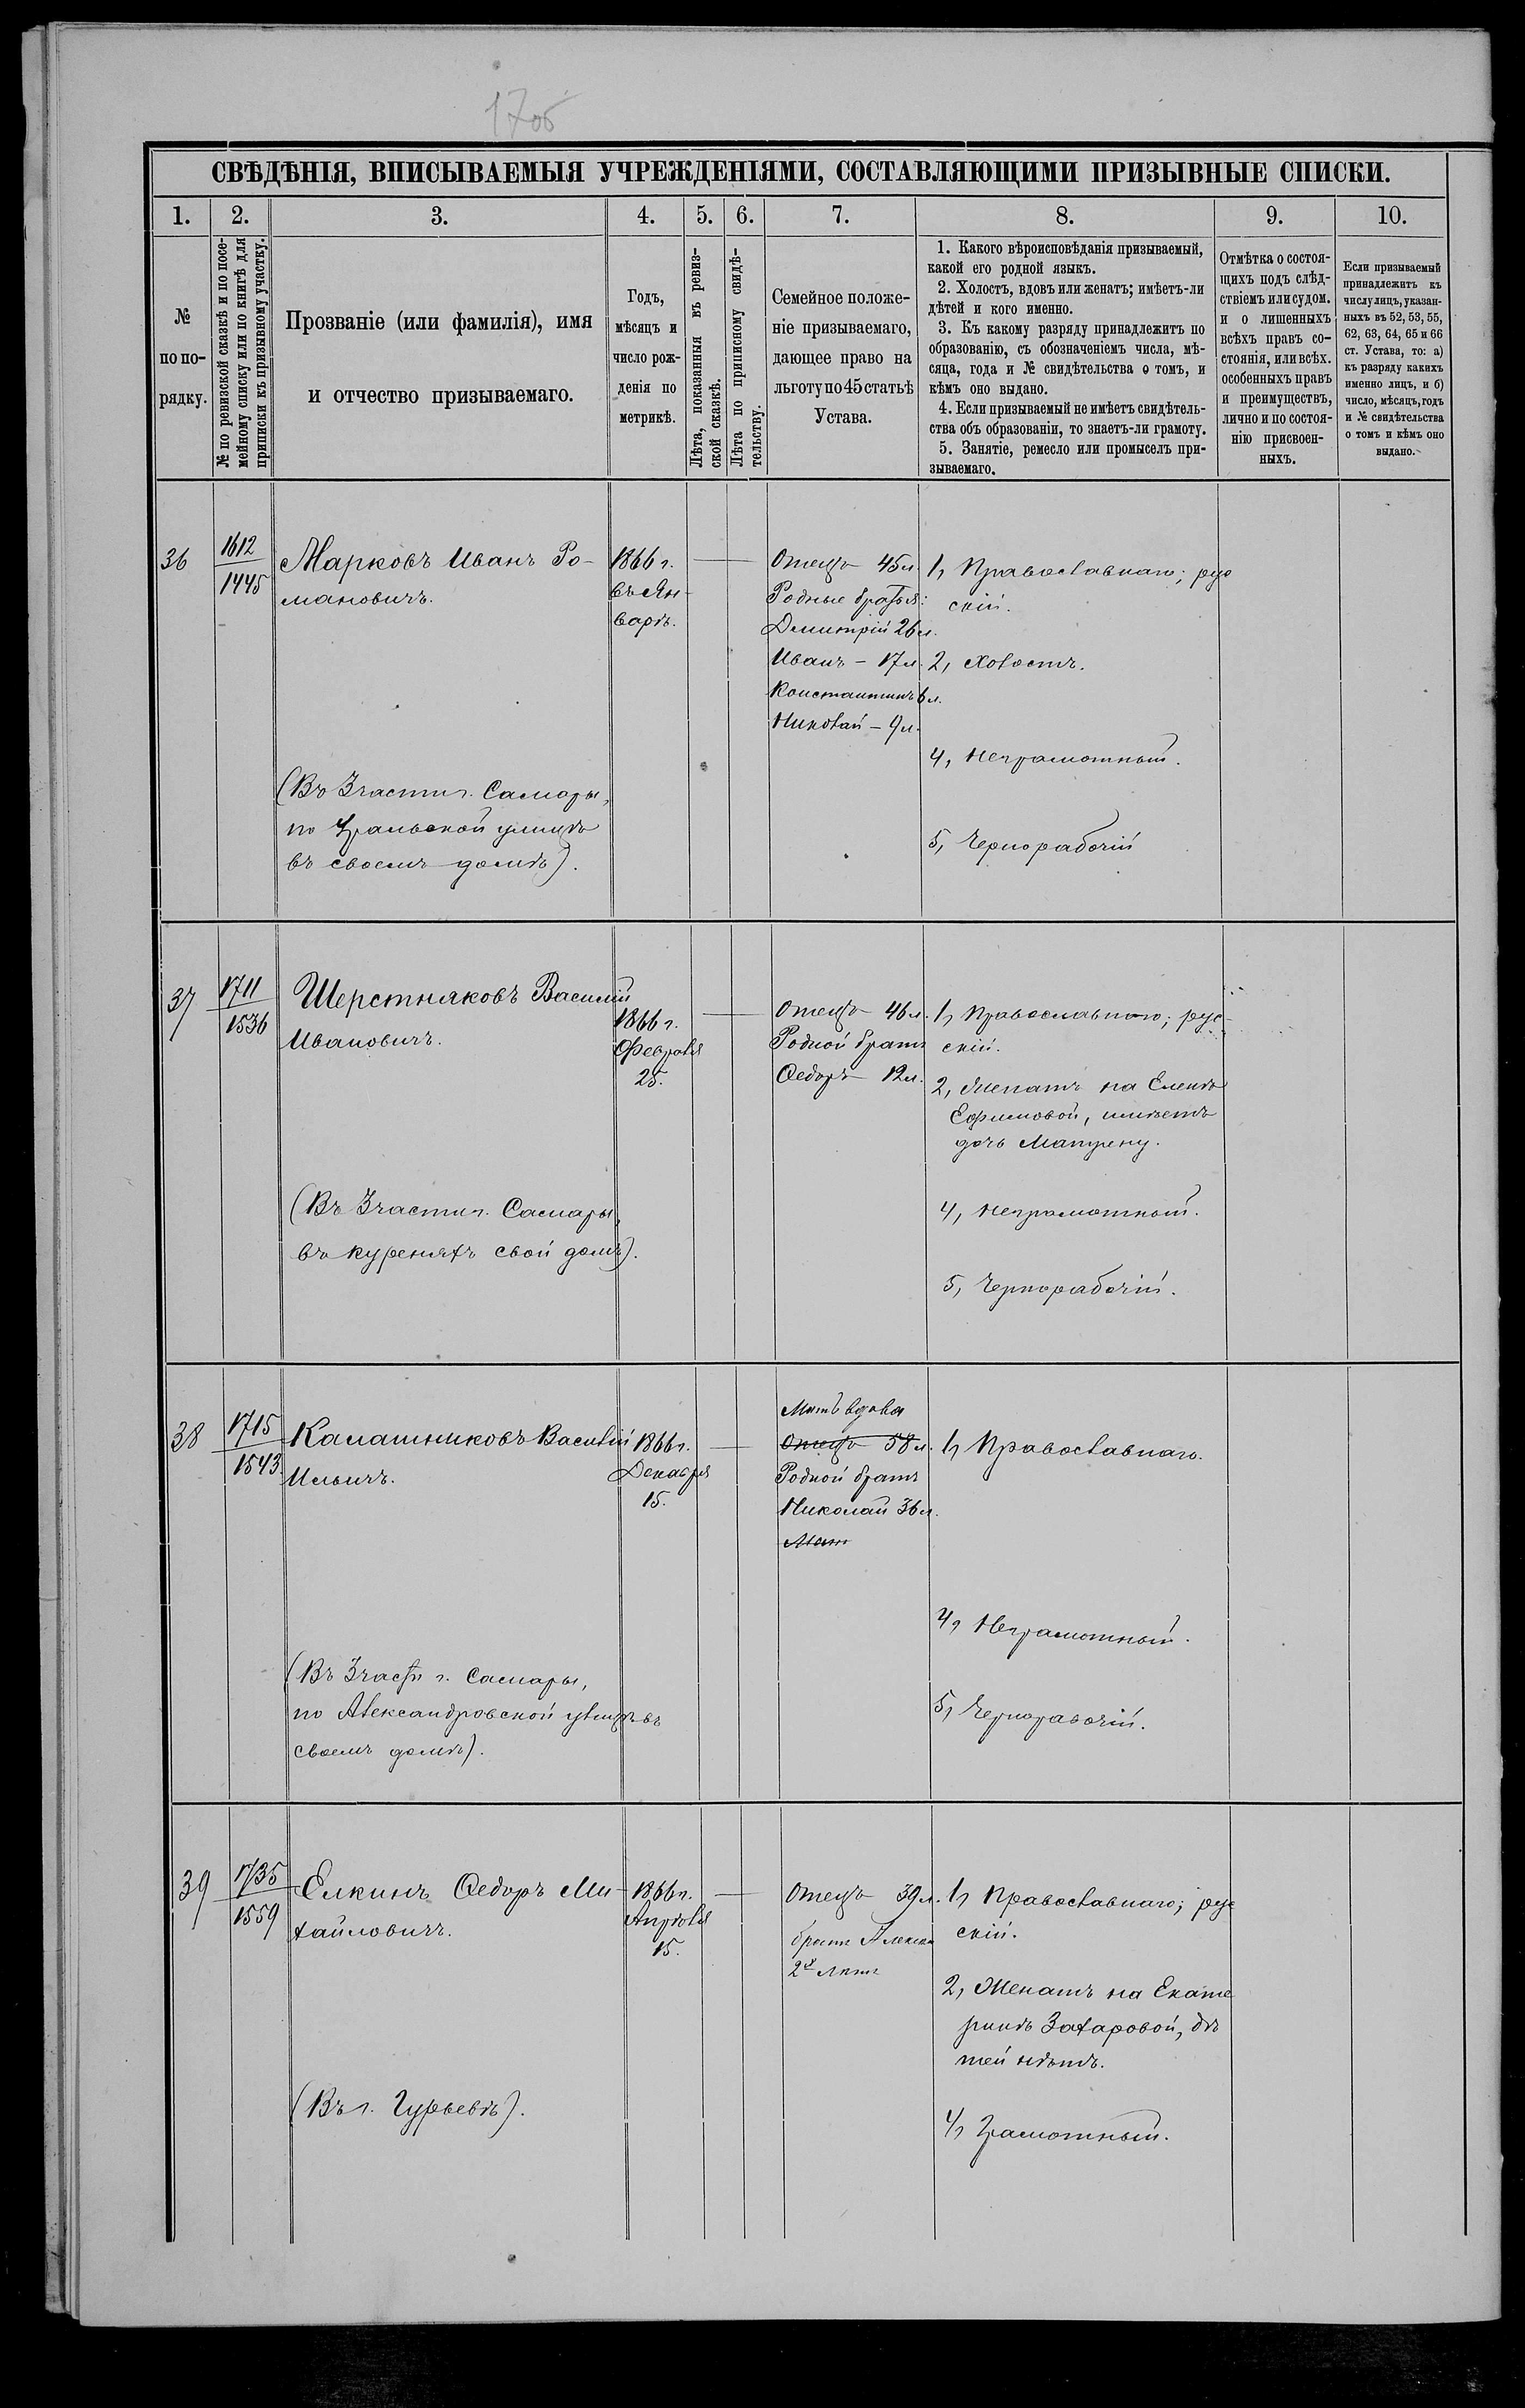 17об
СВѢДѢНІЯ, ВПИСЫВАЕМЫЯ УЧРЕЖДЕНІЯМИ, СОСТАВЛЯЮЩИМИ ПРИЗЫВНЫЕ СПИСКИ.
1. 2. 3. 4. 5. 6. 7. 8. 9. 10.
№
по по-
рядку.
№ по ревизской сказкѣ и по посе-
мейному списку или по книгѣ для
приписки къ призывному участку.
Прозваніе (или фамилія), имя
и отчество призываемаго.
Годъ,
мѣсяцъ и
число рож-
денія по
метрикѣ.
Лѣта, показанныя въ ревиз-
ской сказкѣ.
Лѣта по приписному свидѣ-
тельству.
Семейное положе-
ніе призываемаго,
дающее право на
льготу по 45 статьѣ
Устава.
1. Какого вѣроисповѣданія призываемый,
какой его родной языкъ.
2. Холостъ, вдовъ или женатъ; имѣетъ-ли
дѣтей и кого именно.
3. Къ какому разряду принадлежитъ по
образованію, съ обозначеніемъ числа, мѣ-
сяца, года и № свидѣтельства о томъ, и
кѣмъ оно выдано.
4. Если призываемый не имѣетъ свидѣтель-
ства объ образованіи, то знаетъ-ли грамоту.
5. Занятіе, ремесло или промыселъ при-
зываемаго.
Отмѣтка о состоя-
щихъ подъ слѣд-
ствіемъ или судом.
и о лишенныхъ
всѣхъ правъ со-
стоянія, или всѣх.
особенныхъ правъ
и преимуществъ,
лично и по состоя-
нію присвоен-
ныхъ.
Если призываемый
принадлежитъ къ
числу лицъ, указан-
ныхъ въ 52, 53, 55,
62, 63, 64, 65 и 66
ст. Устава, то: а)
къ разряду какихъ
именно лицъ, и б)
число, мѣсяцъ, годъ
и № свидѣтельства
о томъ и кѣмъ оно
выдано.
36
1612
1445
Марковъ Иванъ Ро-
мановичъ.
(Въ 3 части г. Самары,
по Уральской улицѣ
въ своемъ домѣ).
1866 г.
въ Ян-
варѣ.
Отецъ 45 л.
Родные братья:
Димитрій 26 л.
Иванъ - 17 л.
Константинъ 6 л.
Николай - 9 л.
1, Православнаго; рус
скій.
2, Холостъ.
4, Неграмотный.
5, Чернорабочій
37
1711
1536
Шерстняковъ Василій
Ивановичъ.
(Въ 3 части г. Самары,
въ куреняхъ свой домъ).
1866 г.
Февраля
25.
Отецъ 46 л.
Родной братъ
Ѳедоръ 12 л.
1, Православнаго; рус-
скій.
2, Женатъ на Еленѣ
Ефимовой, имѣетъ
дочь Матрену.
4, Неграмотный.
5, Чернорабочій.
38
1715
1543
Калашниковъ Василій
Ильичъ.
(Въ 3 части г. Самары,
по Александровской улицѣ въ
своемъ домѣ).
1866 г.
Декабря
15.
Мать вдова
Отецъ 58 л.
Родной братъ
Николай 36 л.
Мат
1, Православнаго.
4, Неграмотный.
5, Чернорабочій.
39
1735
1559
Елкинъ Ѳедоръ Ми-
хайловичъ.
(Въ г. Гурьевѣ).
1866 г.
Апрѣля
15.
Отецъ 39 л.
братъ
2х лѣтъ
1, Православнаго; рус
скій.
2, Женатъ на Екате
ринѣ Захаровой, дѣ
тей нѣтъ.
4, Грамотный.